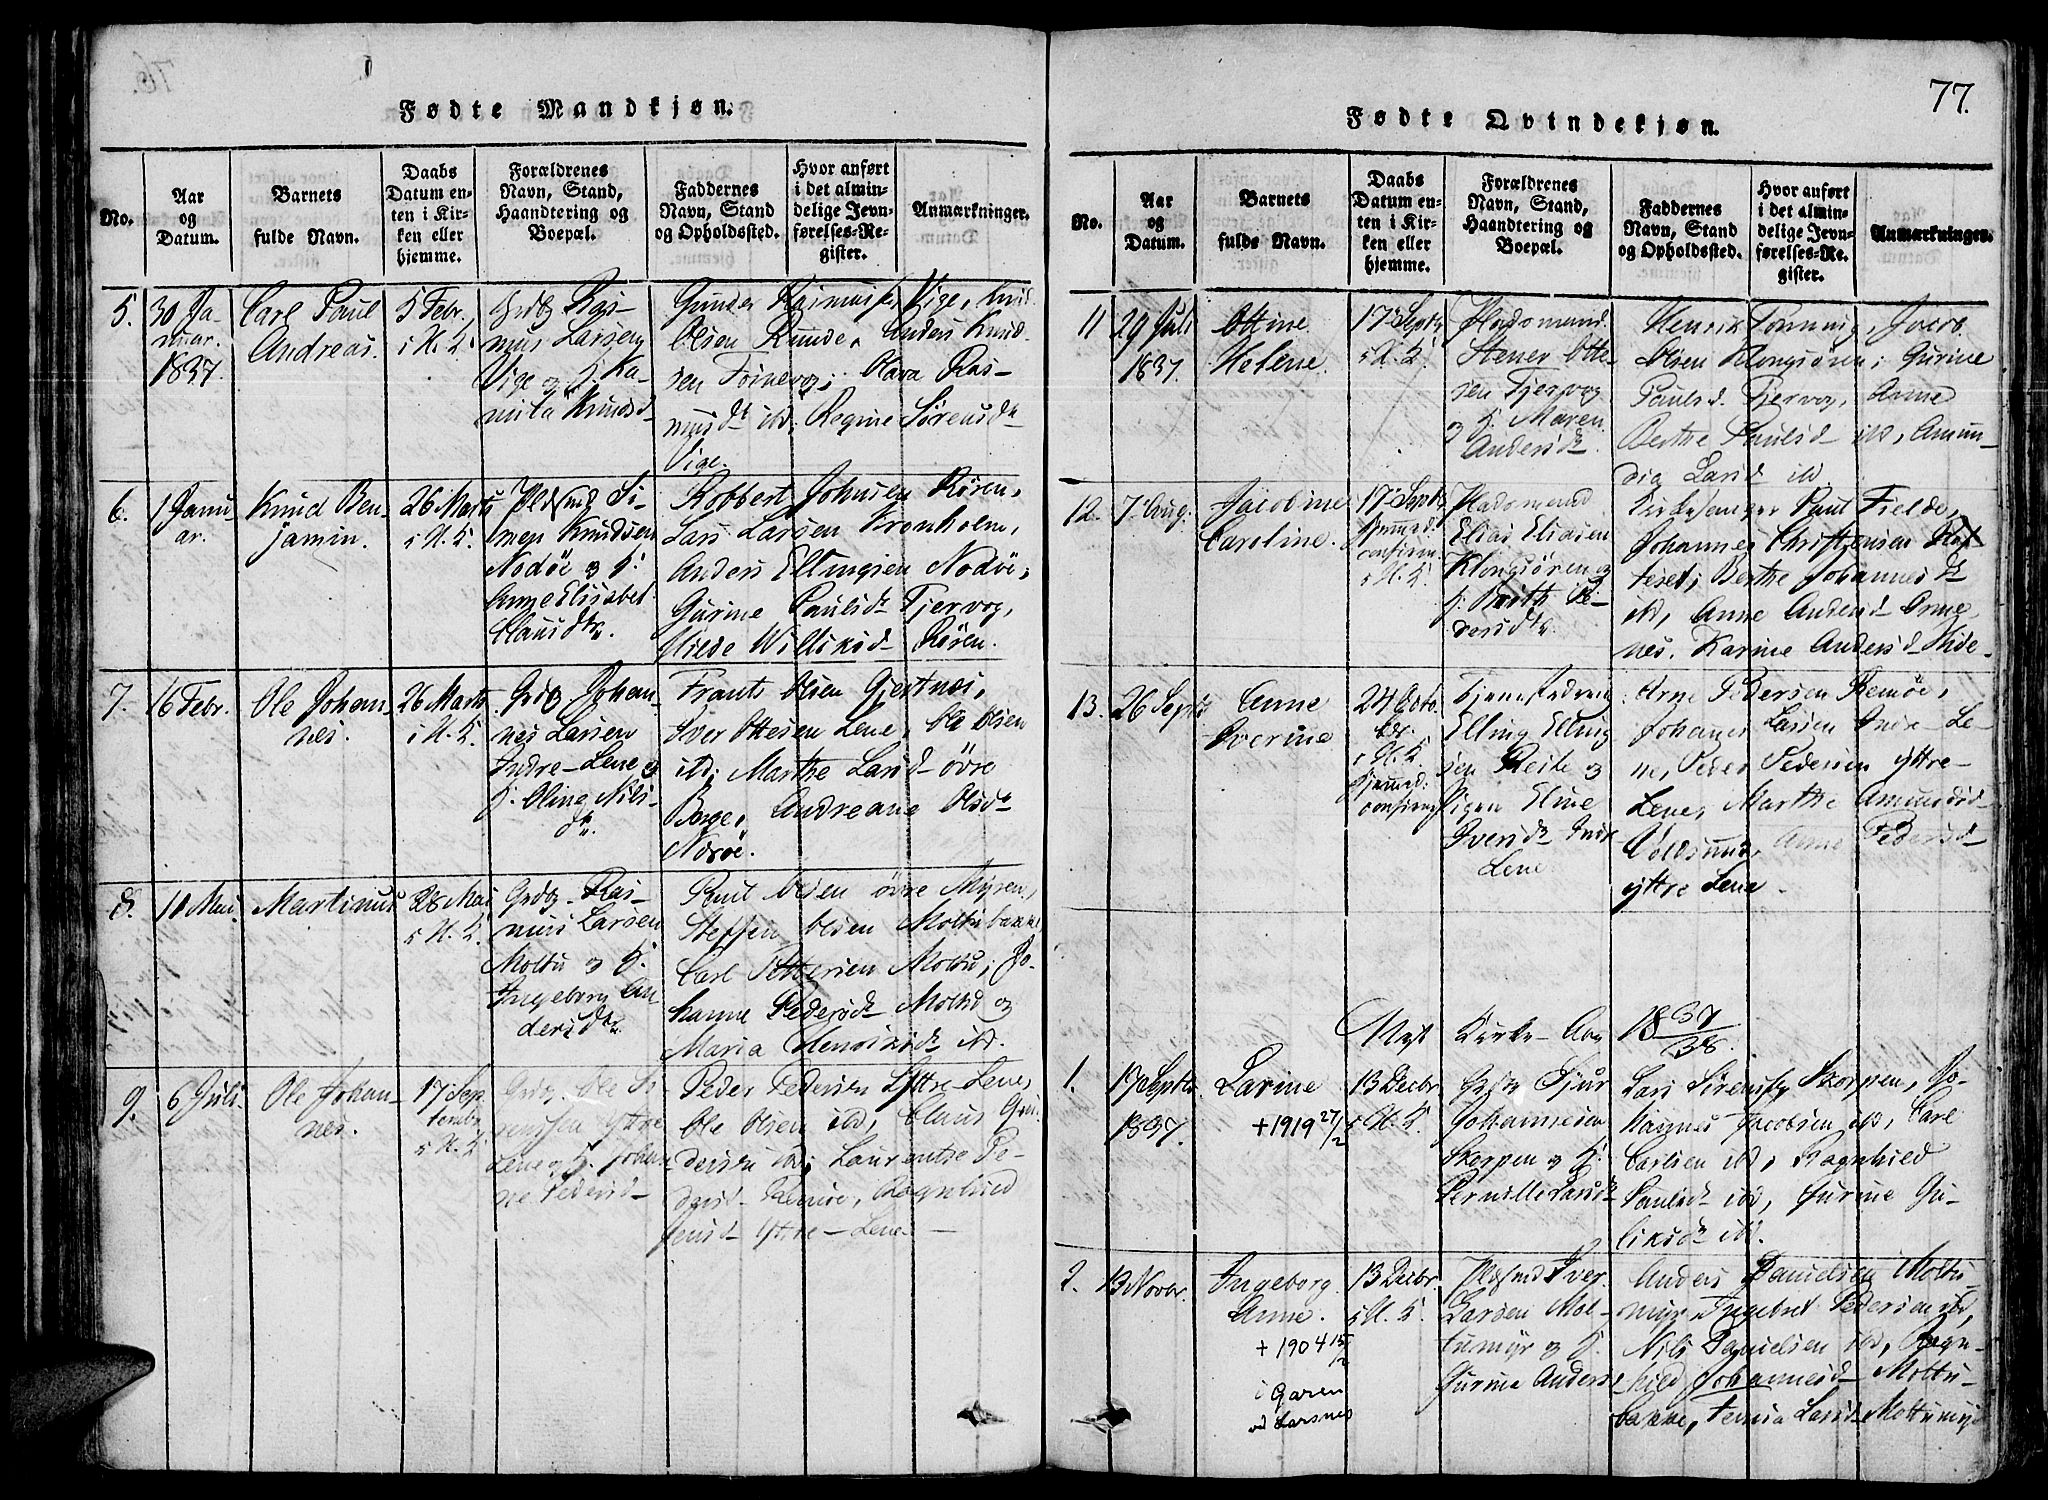 77.
Fødte Mandkjøn.
No.
Aar
og
Datum.
Barnets
fulde Navn.
Daabs
Datum en-
ten i Kir-
ken eller
hjemme.
Forældrenes
Navn, Stand,
Haandtering og
Boepæl.
Faddernes
Navn, Stand
og Opholdssted.
Hvor anført
i det almin-
delige Jevn-
førelses-Re-
gister.
Anmærkninger.
5.
30 Ja-
nuar.
1837.
Carl Paul
Andreas.
5 Febr.
i H. K.
Grdbr Ras-
mus Larsen
Vige og K. Ka-
mila Knudsd
Gunder Rasmusen Vige, Knud
Olsen Runde, Anders Knud-
sen Tornevog; Olava Ras-
musdr ibd; Regine Sørensdr
Vige.
6.
1 Janu-
ar.
Knud Ben-
jamin.
26 Marts
i H. K.
Pldsmd Si-
men Knudsen
Nodöe og K:
Anne Elisabet
Clausdtr.
Robbert Johnsen Røren,
Lars Larsen Kronholm,
Anders Ellingsen Nodöe;
Gurine Paulsdr Tjervog,
Røren.
7.
16 Febr.
Ole Johan-
nes.
26 Marts
i H. K.
Grdb Johan-
nes Larsen
Indre-Lene og
K. Oline Nils-
dtr.
Frants Olsen Gjertnæs,
Iver Ottesen Lene, Ole Olsen
ibd; Marthe Larsd øvre
Berge, Andreane Olsdr
Nørøe.
8.
11 Mai
Martinus
28 Mai
i H. K.
Grdbr Ras-
mus Larsen
Moltu og K.
Ingeborg An-
dersdtr.
Paul Olsen øvre Myren,
Steffen Olsen Moltubakke
Carl Pettersen Moltu; Jo-
hanne Pedersdr Moltu og
Maria Henriksdr ibd.
9.
6 Juli
Ole Johan-
nes.
17 Sep-
tembr
i H. K.
Grdbr Ole Si-
Yttre
Lene og K. Johan-
ne Pedersd
Peder Pedersen Yttre Lene,
Ole Olsen ibd, Claus
dersen ibd; Laurentse Pe-
dersd Remöe, Ragnhild
Jensd Yttre-Lene.
Fødte Qvindekjøn.
No.
Aar
og
Datum.
Barnets
fulde Navn.
Daabs
Datum en-
ten i Kir-
ken eller
hjemme.
Forældrenes
Navn, Stand,
Haandtering og
Boepæl.
Faddernes
Navn, Stand
og Opholdssted.
Hvor anført
i det almin-
delige Jevn-
førelses-Re-
gister.
Anmærkninger.
11
29 Juli
1837.
Ottine
Helene.
17 Septr
i H. K.
Pladsmand
Stener Otte-
sen Tjervog
og K. Maren
Andersdr.
Henrik Tonning, Jacob
Olsen Klongsøren; Gurine
Paulsd Tjervog, Anne
Berthe Paulsd ibd, Amun-
dia Larsd ibd
12.
7 Aug:
Jacobine
Caroline.
17 Septr
hjemmed.
confirm.
i H. K.
Pladsmand
Elias Eliasen
Klongsøren og
K:
dersdtr.
Kirkesanger Paul Fielde,
Johannes Christensen
Berthe Johannesdr
ibd, Anne Andersd
nes. Karine Andersd
13.
26 Septr
Anne
Iverine
24 Octo-
br.
i H. K.
hjemmed.
confirm.
Elling Elling-
sen Reite og
Pigen Eline
Iversdr Indr
Lene
Arne Pedersen Remöe,
Johannes Larsen Indre Le-
ne, Peder Pedersen yttre-
Lene, Marthe Amundsd
Voldsund, Anne Pedersd
yttre Lene.
Nyt Kirke-Aar 1837/38.
1.
17 Septbr.
1837.
Larine
+ 1919 27/2
13 Decbr
i H. K.
Grdbr Sjur
Johannesen
Skorpen og K:
Pernille Larsdr
Lars Sørensen Skorpen, Jo-
hannes Jacobsen ibd, Carl
Carlsen ibd; Ragnhild
Paulsdr ibd, Gurine Gu-
liksdr ibd.
2.
13 Novbr.
Ingeborg
Anne.
+ 1904 15/2
i Garen
vd Larsnes
13 Decbr
i H. K.
Pldsmd Iver
Larsen Mol-
tumyr og K.
Gurine Anders-
Anders Danielsen Moltu-
myr, Ingebret Pedersen ibd,
Nils Danielsen ibd, Ragn-
hild Johannesd Moltu-
bakke, Larsd Moltumyr